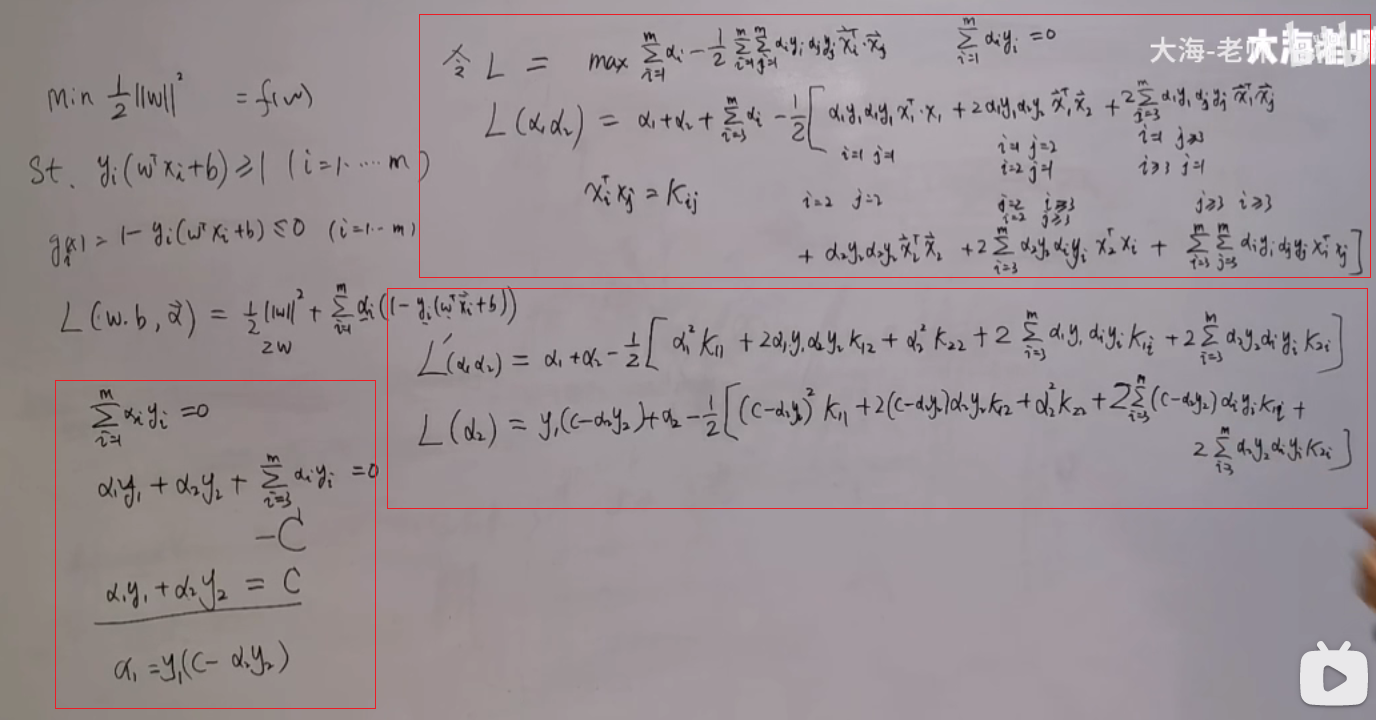 min 1/2 ||w||² = f(w)
St. yᵢ(wᵀxᵢ+b) ≥ 1 (i=1⋯⋯m)
gᵢ(x) = 1 - yᵢ(wᵀxᵢ+b) ≤ 0 (i=1⋯m)
L(w.b, α⃗) = 1/2 ||w||² + Σᵢ₌₁ᵐ αᵢ(1 - yᵢ(wᵀx⃗ᵢ+b))
2w
Σᵢ₌₁ᵐ αᵢyᵢ = 0
α₁y₁ + α₂y₂ + Σᵢ₌₃ᵐ αᵢyᵢ = 0
-C
α₁y₁ + α₂y₂ = C
α₁ = y₁(C - α₂y₂)
大海-老师
令 L = max Σᵢ₌₁ᵐ αᵢ - 1/2 Σᵢ₌₁ᵐ Σⱼ₌₁ᵐ αᵢyᵢαⱼyⱼ x⃗ᵢᵀ·x⃗ⱼ Σᵢ₌₁ᵐ αᵢyᵢ = 0
L(α₁α₂) = α₁+α₂ + Σᵢ₌₃ᵐ αᵢ - 1/2 [α₁y₁α₁y₁x₁ᵀ·x₁ + 2α₁y₁α₂y₂ x⃗₁ᵀx⃗₂ + 2Σⱼ₌₃ᵐ α₁y₁αⱼyⱼ x⃗₁ᵀx⃗ⱼ
i=1 j=1 i=1 j=2 i=1 j≥3
i=2 j=1 i≥3 j=1
xᵢᵀxⱼ = Kᵢⱼ i=2 j=2 j=2 i≥3 j≥3 i≥3
i=2 j≥3
+ α₂y₂α₂y₂ x⃗₂ᵀx⃗₂ + 2Σᵢ₌₃ᵐ α₂y₂αᵢyᵢ x₂ᵀxᵢ + Σᵢ₌₃ᵐ Σⱼ₌₃ᵐ αᵢyᵢαⱼyⱼxᵢᵀxⱼ]
L′(α₁α₂) = α₁+α₂ - 1/2 [α₁²K₁₁ + 2α₁y₁α₂y₂K₁₂ + α₂²K₂₂ + 2Σᵢ₌₃ᵐ α₁y₁αᵢyᵢK₁ᵢ + 2Σᵢ₌₃ᵐ α₂y₂αᵢyᵢK₂ᵢ]
L(α₂) = y₁(C-α₂y₂)+α₂ - 1/2 [(C-α₂y₂)²K₁₁ + 2(C-α₂y₂)α₂y₂K₁₂ + α₂²K₂₂ + 2Σᵢ₌₃ᵐ (C-α₂y₂)αᵢyᵢK₁ᵢ +
2Σᵢ₌₃ᵐ α₂y₂αᵢyᵢK₂ᵢ]